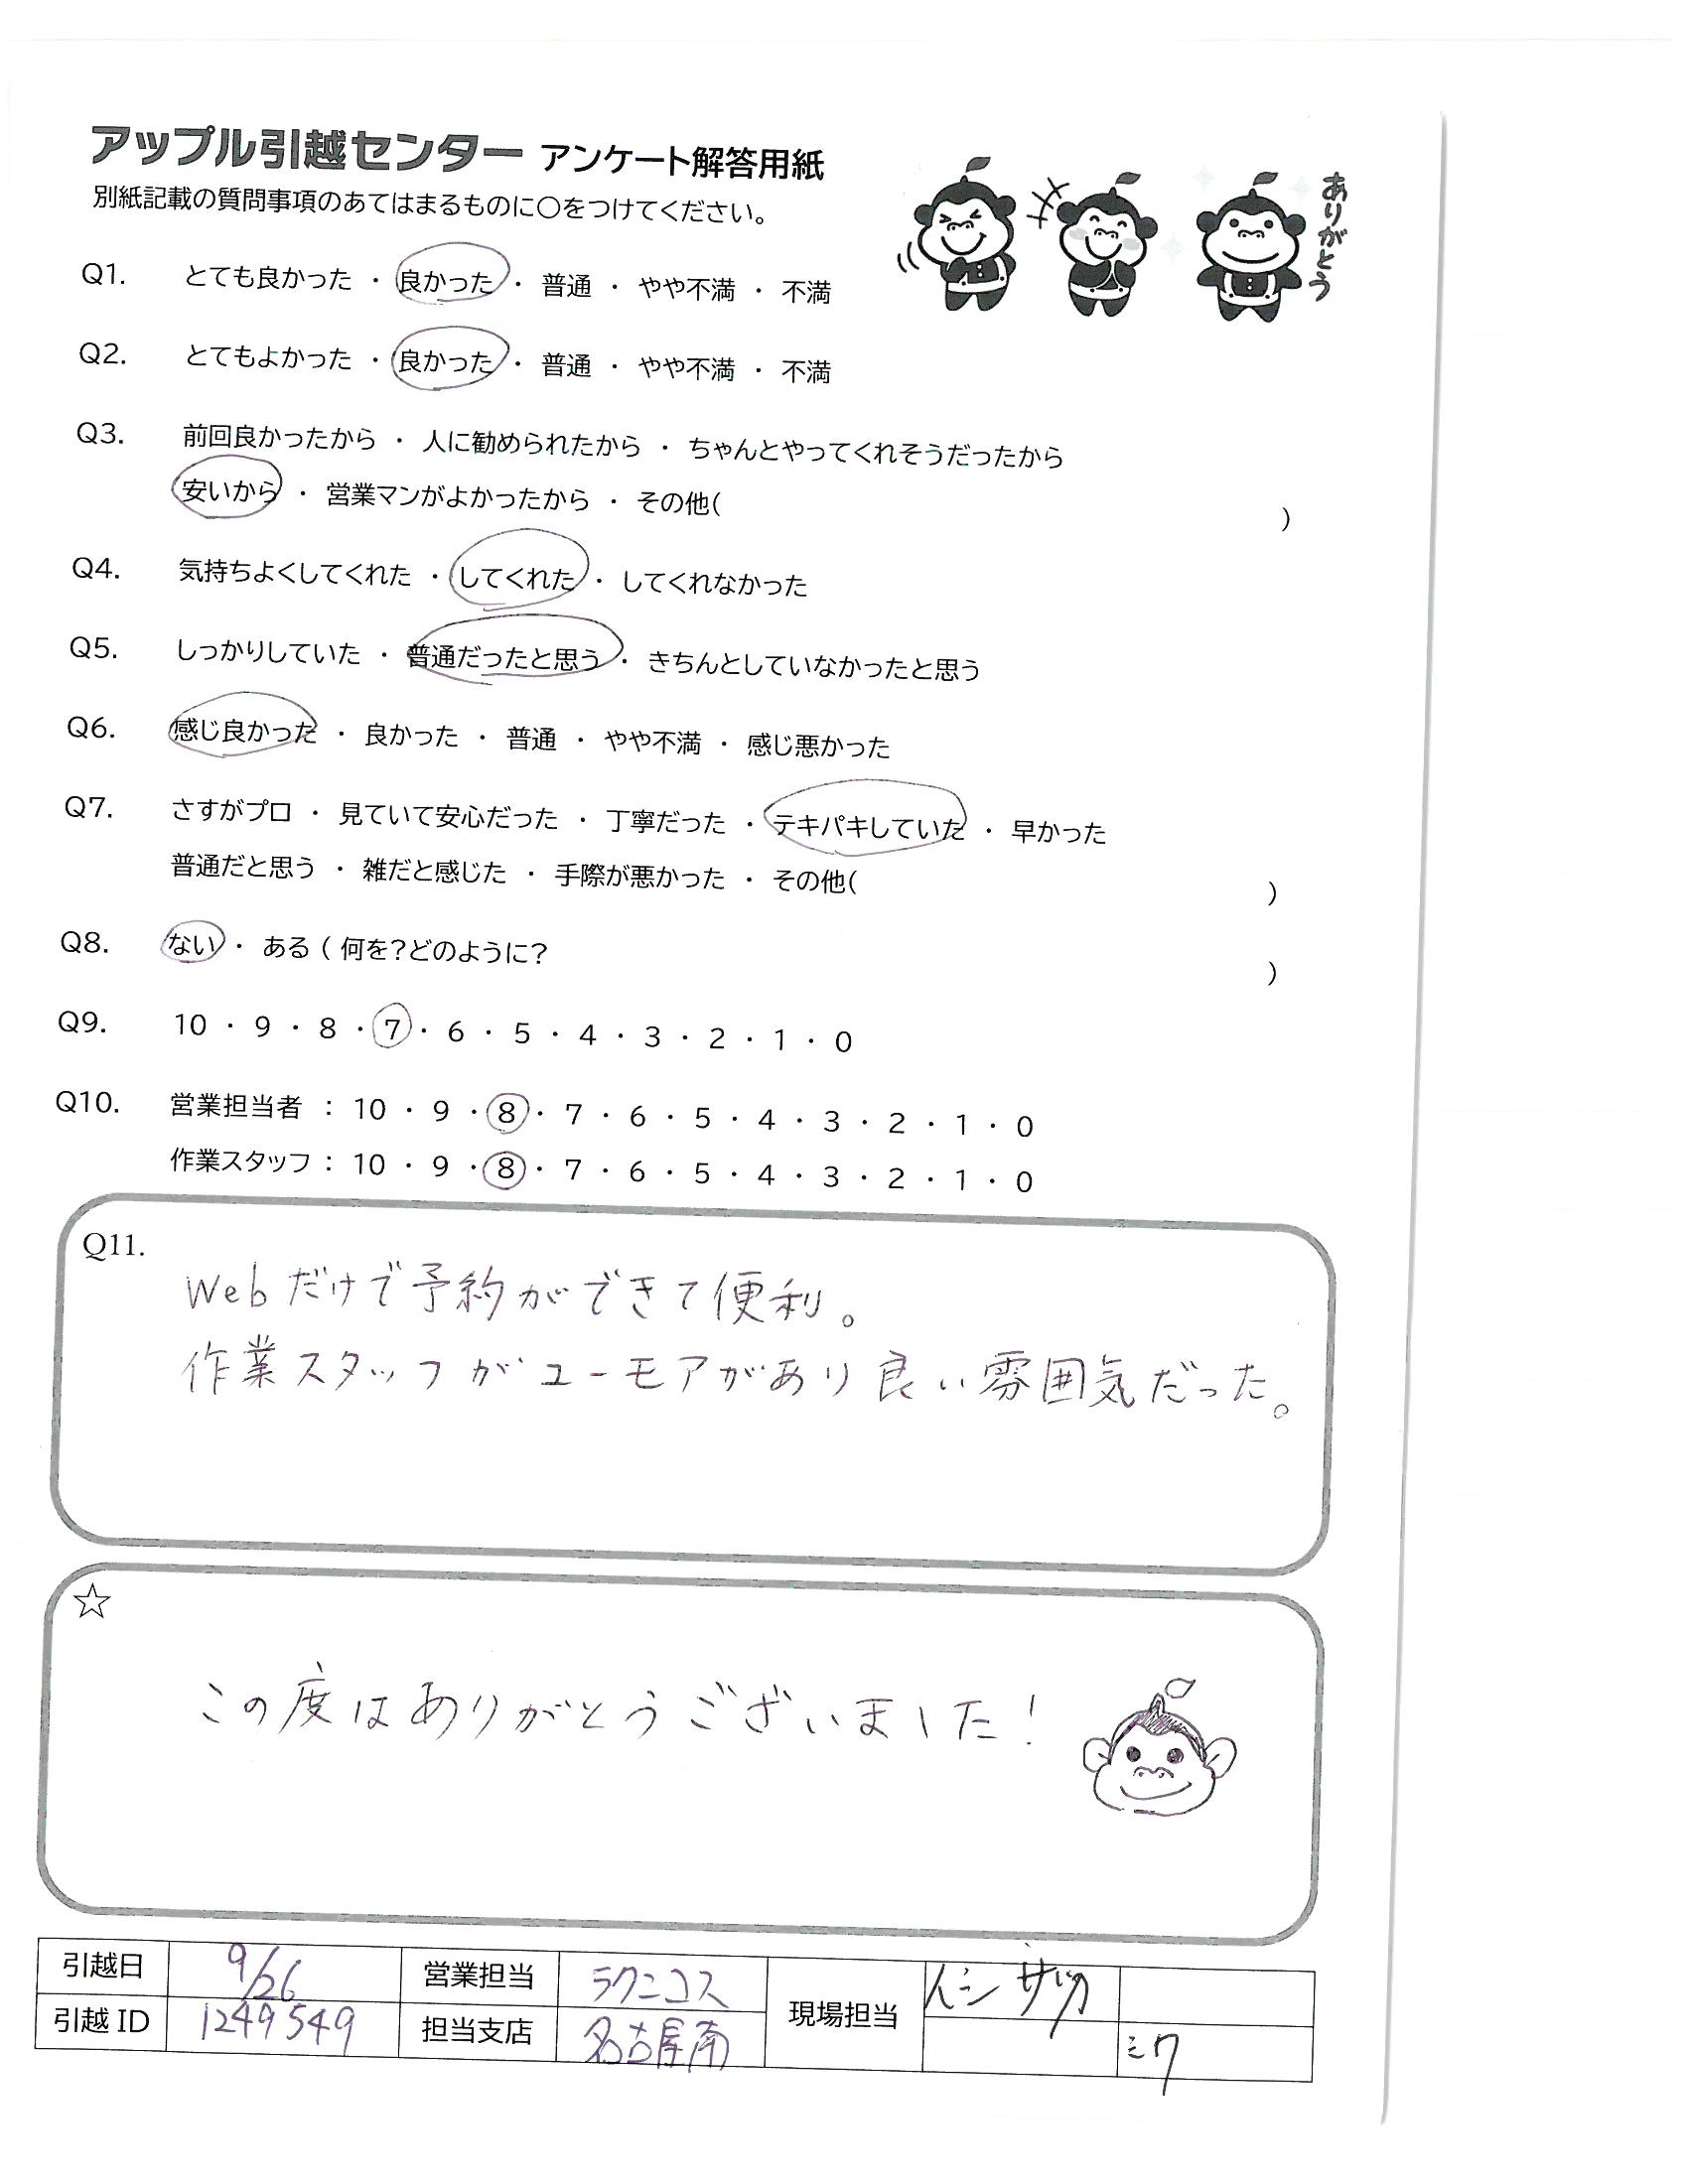 アップル引越センター アンケート解答用紙
別紙記載の質問事項のあてはまるものに○をつけてください。
ありがとう
Q1. とても良かった ・ 良かった ・ 普通 ・ やや不満 ・ 不満
Q2. とてもよかった ・ 良かった ・ 普通 ・ やや不満 ・ 不満
Q3. 前回良かったから ・ 人に勧められたから ・ ちゃんとやってくれそうだったから
安いから ・ 営業マンがよかったから ・ その他( )
Q4. 気持ちよくしてくれた ・ してくれた ・ してくれなかった
Q5. しっかりしていた ・ 普通だったと思う ・ きちんとしていなかったと思う
Q6. 感じ良かった ・ 良かった ・ 普通 ・ やや不満 ・ 感じ悪かった
Q7. さすがプロ ・ 見ていて安心だった ・ 丁寧だった ・ テキパキしていた ・ 早かった
普通だと思う ・ 雑だと感じた ・ 手際が悪かった ・ その他( )
Q8. ない ・ ある ( 何を?どのように? )
Q9. 10 ・ 9 ・ 8 ・ 7 ・ 6 ・ 5 ・ 4 ・ 3 ・ 2 ・ 1 ・ 0
Q10. 営業担当者 : 10 ・ 9 ・ 8 ・ 7 ・ 6 ・ 5 ・ 4 ・ 3 ・ 2 ・ 1 ・ 0
作業スタッフ : 10 ・ 9 ・ 8 ・ 7 ・ 6 ・ 5 ・ 4 ・ 3 ・ 2 ・ 1 ・ 0
Q11.
Webだけで予約ができて便利。
作業スタッフがユーモアがあり良い雰囲気だった。
☆
この度はありがとうございました!
引越日 9/26 営業担当 ラクニコス 現場担当 イシザカ
引越ID 1249549 担当支店 名古屋南 ミワ